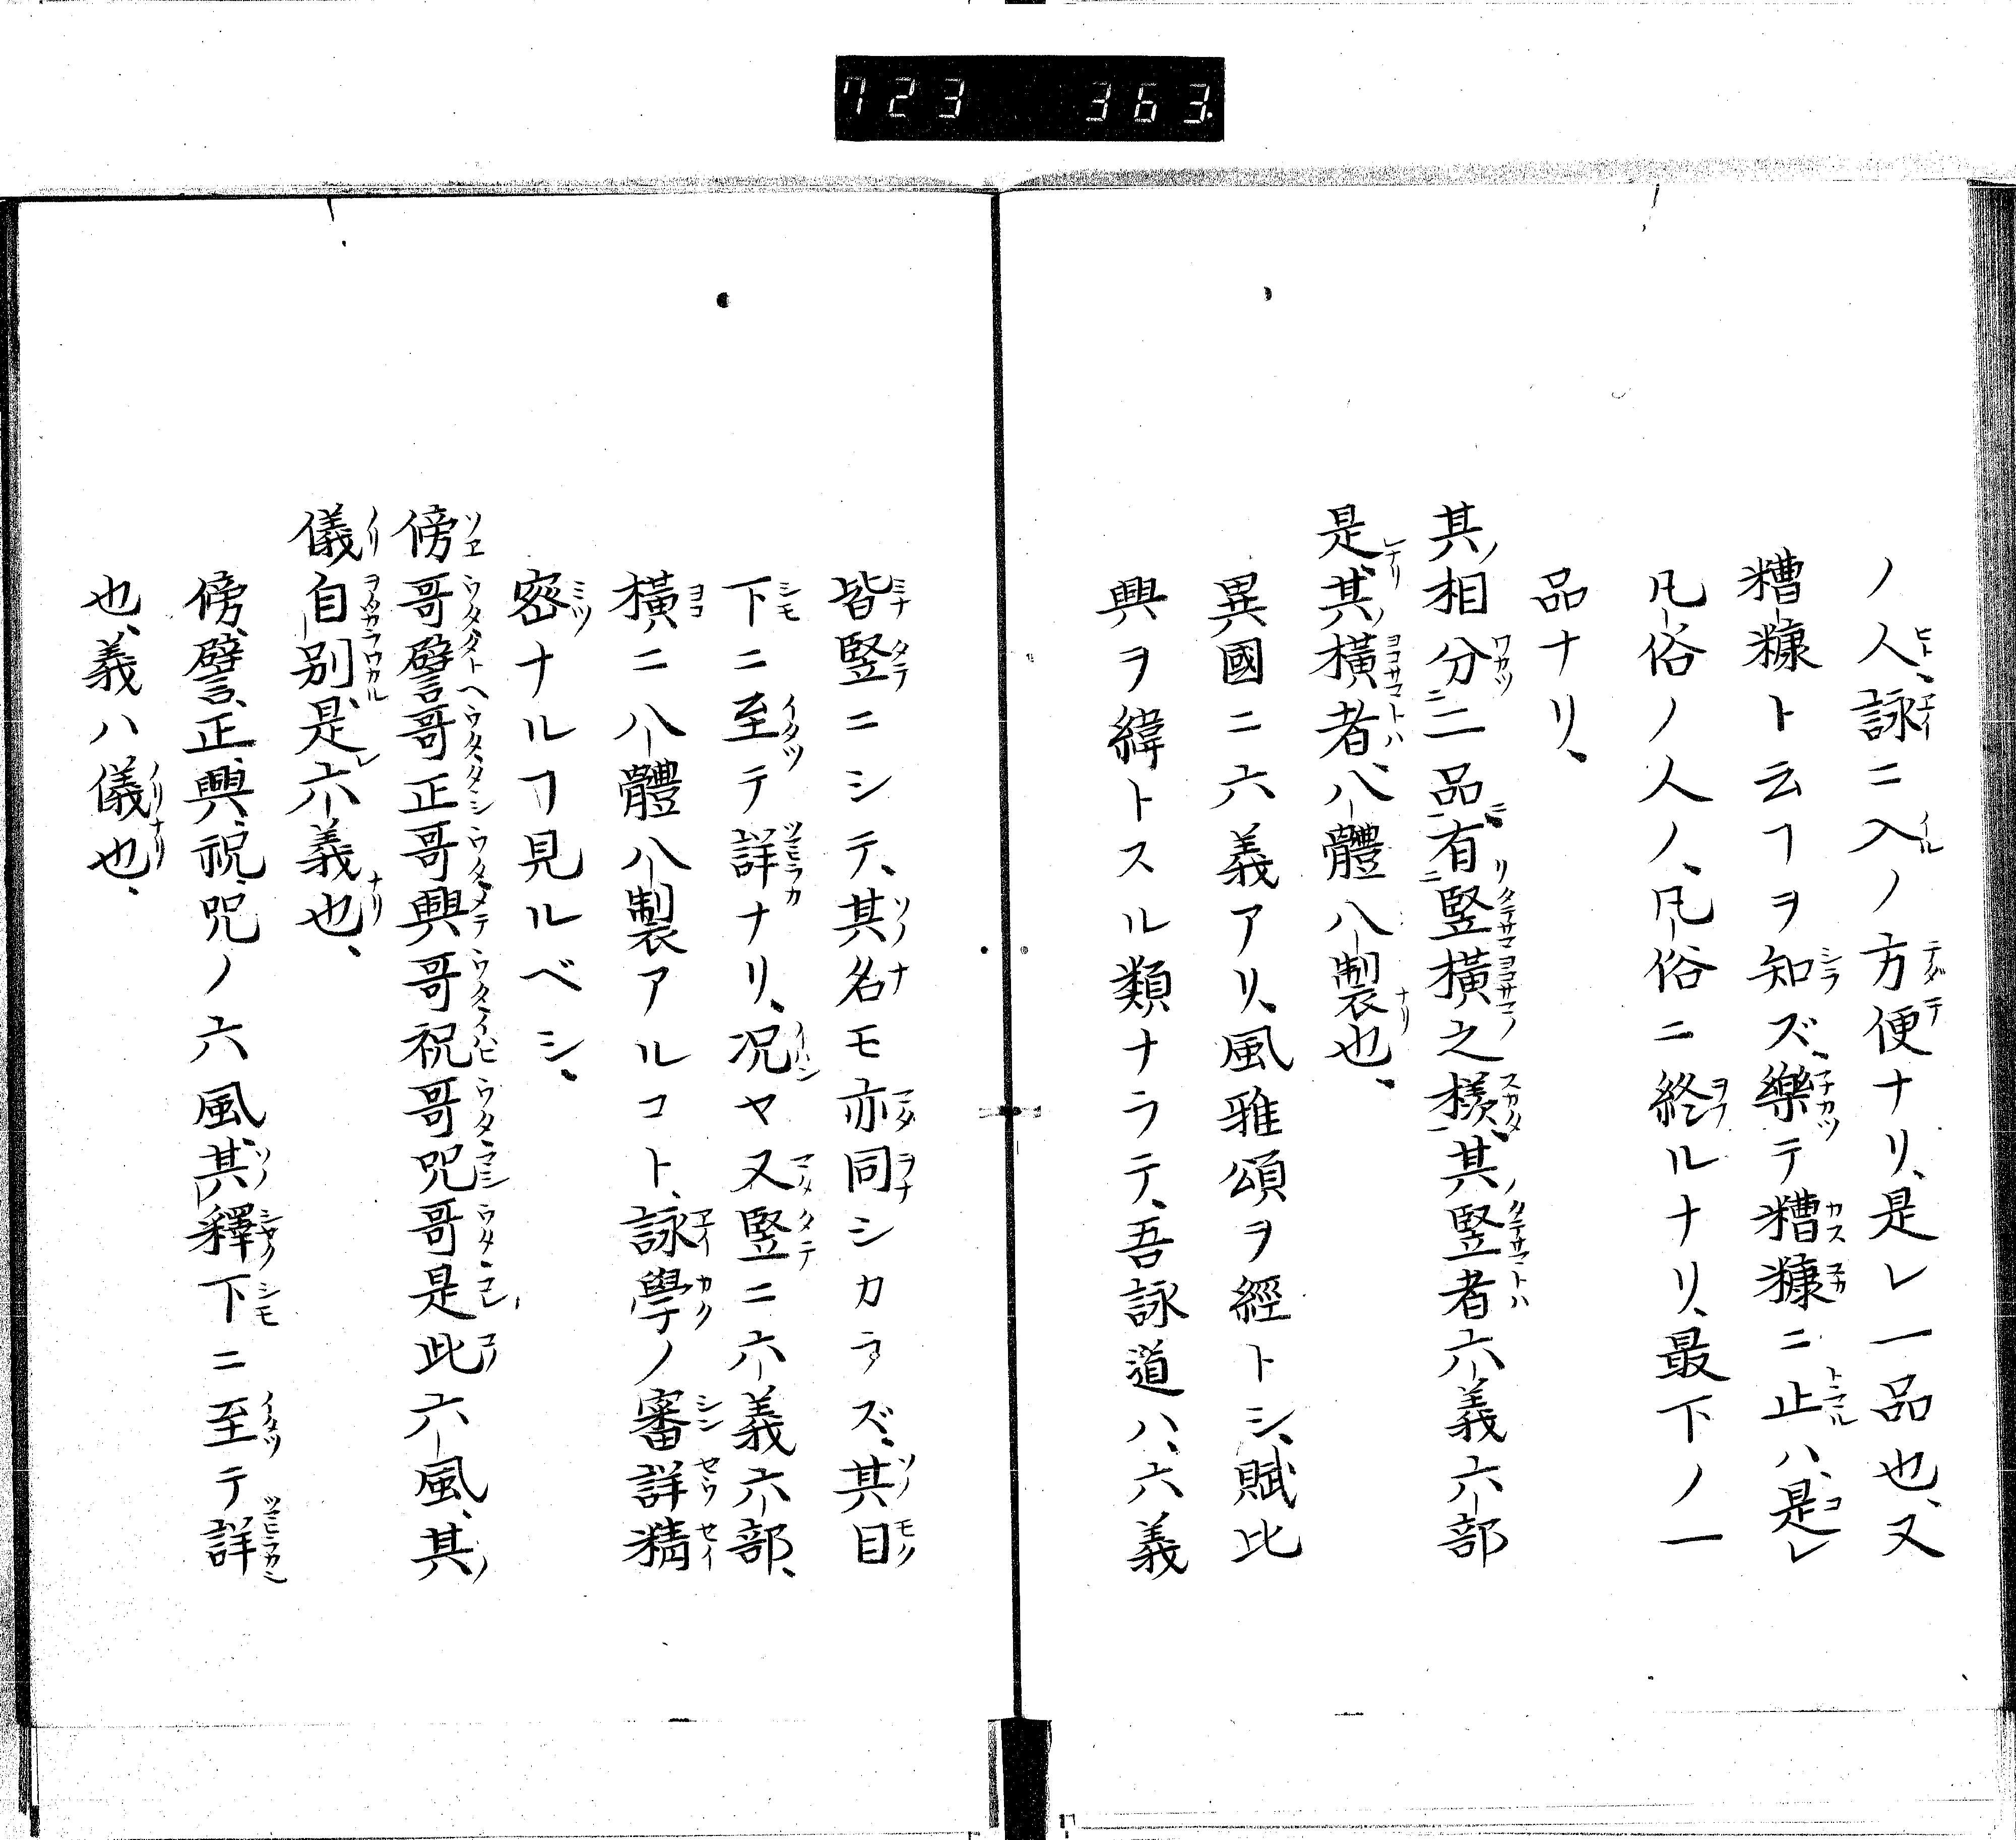 723 363.
ノ人、詠ニ入ノ方便ナリ、是レ一品也、又
糟糠ト云ヿヲ知ズ、樂テ糟糠ニ止ハ、是レ
凡俗ノ人ノ、凡俗ニ終ルナリ、最下ノ一
品ナリ、
其相分二二品一有二竪橫之樣一、其竪者六義六部
是、其橫者、八體八製也、
異國ニ六義アリ、風雅頌ヲ經トシ、賦比
興ヲ緯トスル類ナラテ、吾詠道ハ、六義
皆竪ニシテ、其名モ亦同シカラズ、其目
下ニ至テ詳ナリ、况ヤ又竪ニ六義六部、
橫ニ八體八製アルコト、詠學ノ審詳精
密ナルヿ見ルベシ、
傍哥譬哥正哥興哥祝哥咒哥是此六風、其
儀自別、是六義也、
傍、譬、正、興、祝、咒ノ六風、其釋下ニ至テ詳
也、義ハ儀也、